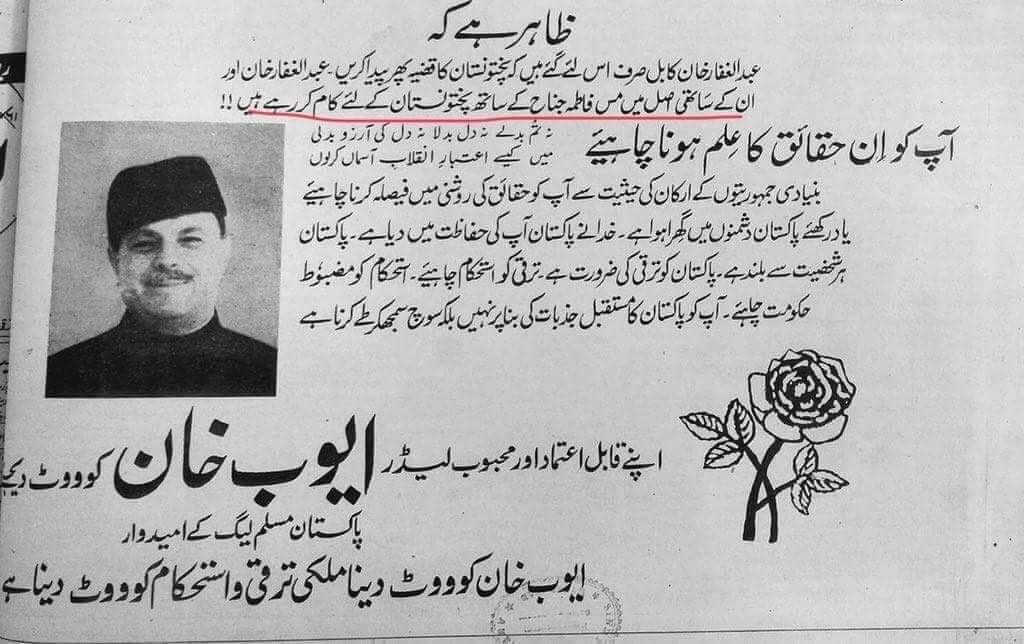 ظاہر ہے کہ
عبدالغفار خان کابل صرف اس لئے گئے ہیں کہ پختونستان کا قضیہ پھر پیدا کریں۔ عبدالغفار خان اور
ان کے ساتھی مہل میں مس فاطمہ جناح کے ساتھ پختونستان کے لئے کام کر رہے ہیں !!
نہ تم بدلے نہ دل بدلا نہ دل کی آرزو بدلی
میں کیسے اعتبارِ انقلاب آسماں کرلوں
آپ کو اِن حقائق کا عِلم ہونا چاہئیے
بنیادی جمہوریتوں کے ارکان کی حیثیت سے آپ کو حقائق کی روشنی میں فیصلہ کرنا چاہئیے
یاد رکھئے پاکستان دشمنوں میں گھِرا ہوا ہے۔ خدا نے پاکستان آپ کی حفاظت میں دیا ہے۔ پاکستان
ہر شخصیت سے بلند ہے۔ پاکستان کو ترقی کی ضرورت ہے۔ ترقی کو استحکام چاہئیے۔ استحکام کو مضبوط
حکومت چاہئے۔ آپ کو پاکستان کا مستقبل جذبات کی بنا پر نہیں بلکہ سوچ سمجھ کر طے کرنا ہے
اپنے قابل اعتماد اور محبوب لیڈر ایوب خان کو ووٹ
پاکستان مسلم لیگ کے امیدوار
ایوب خان کو ووٹ دینا ملکی ترقی و استحکام کو ووٹ دینا ہے